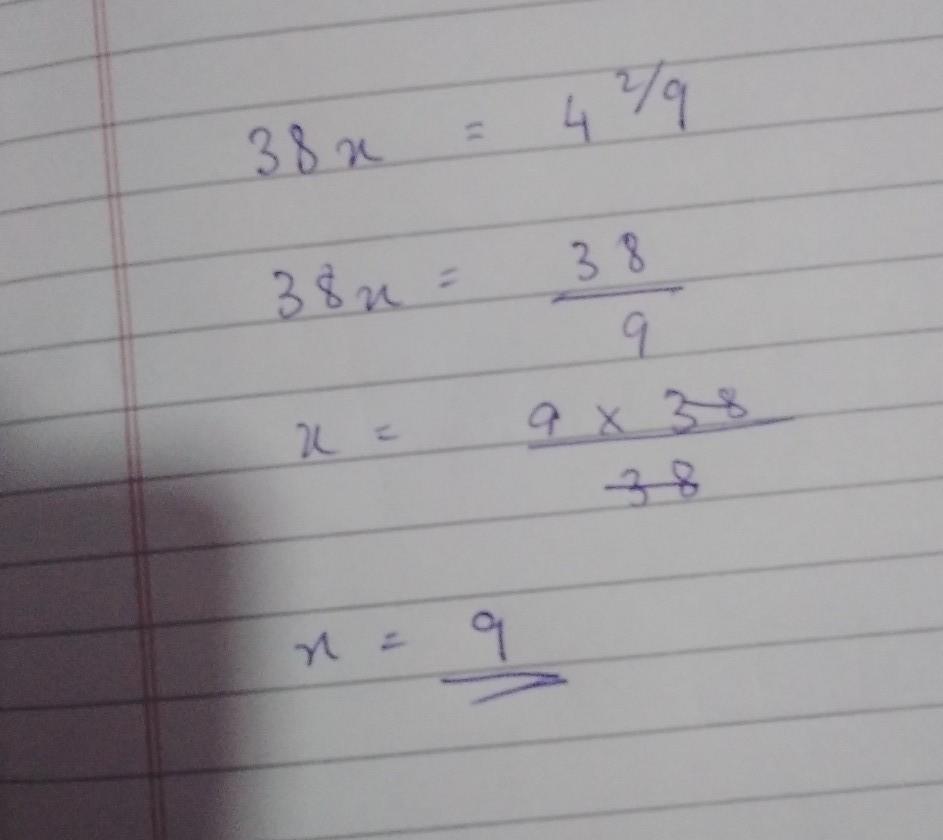 38x = 4 2/9
38x = 38/9
x = 9 x 38 / 38
x = 9